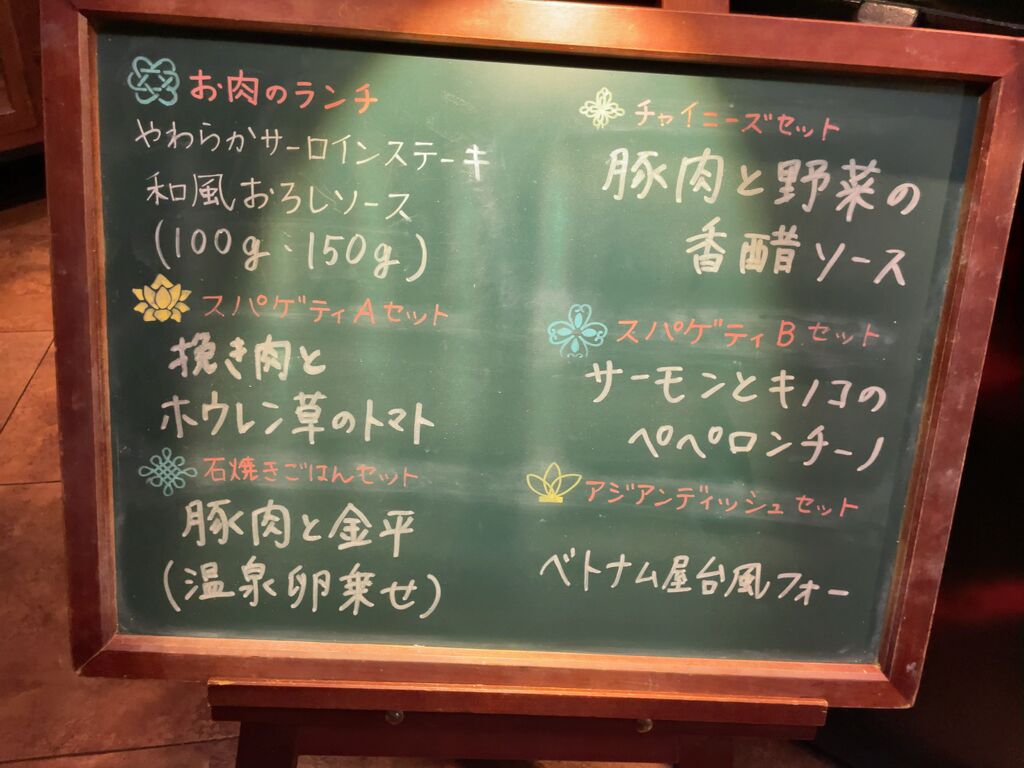 お肉のランチ
やわらかサーロインステーキ
和風おろしソース
(100g、150g)
スパゲティAセット
挽き肉と
ホウレン草のトマト
石焼きごはんセット
豚肉と金平
(温泉卵乗せ)
チャイニーズセット
豚肉と野菜の
香醋ソース
スパゲティBセット
サーモンとキノコの
ペペロンチーノ
アジアンディッシュセット
ベトナム屋台風フォー